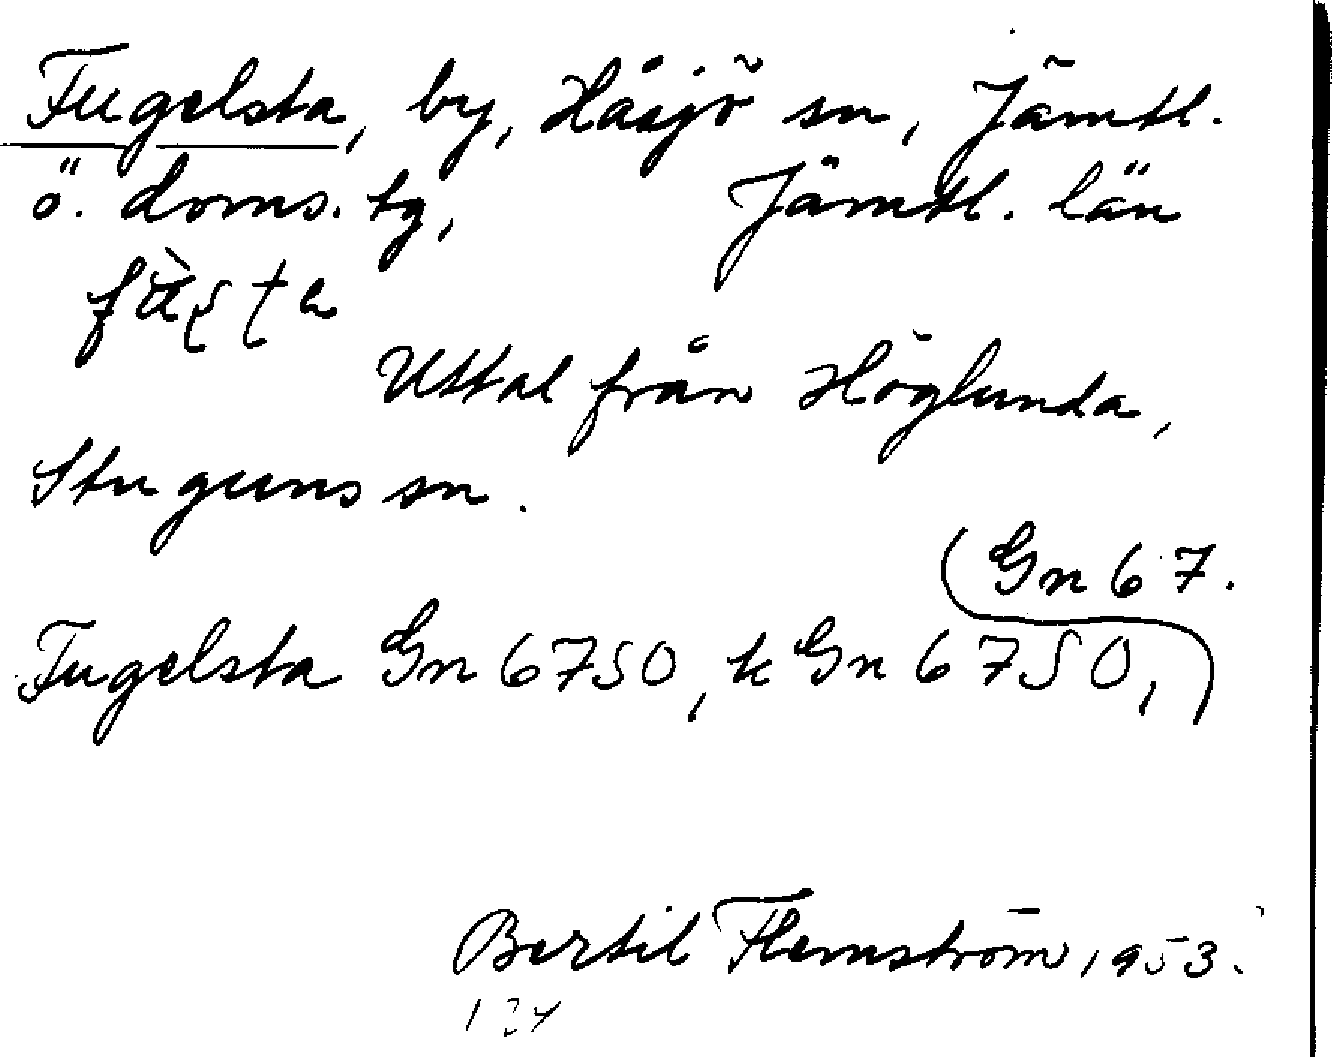 Fugelsta, by, Håsjö sn, Jämtl.
ö. doms. tg, Jämtl. län
Uttal från Höglunda,
Stuguns sn.
(Gn 67.
Fugelsta Gn 6750, k Gn 6750,)
Bertil Flemström, 1953.